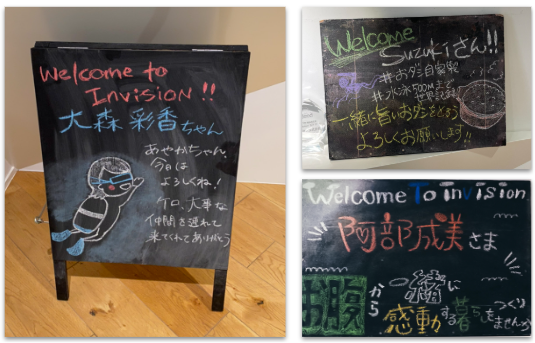 Welcome to
Invision!!
大森 彩香ちゃん
あやかちゃん、
今日は
よろしくね!
ケロ、大事な
仲間を連れて
来てくれてありがとう
Welcome
Suzukiさん!!
#おダシ自家製
#水泳500m
一緒に旨いおダシをとろう
よろしくお願いします!!
Welcome To invision
阿部成美さま
お腹から一緒に
感動する暮らしを
つくりませんか